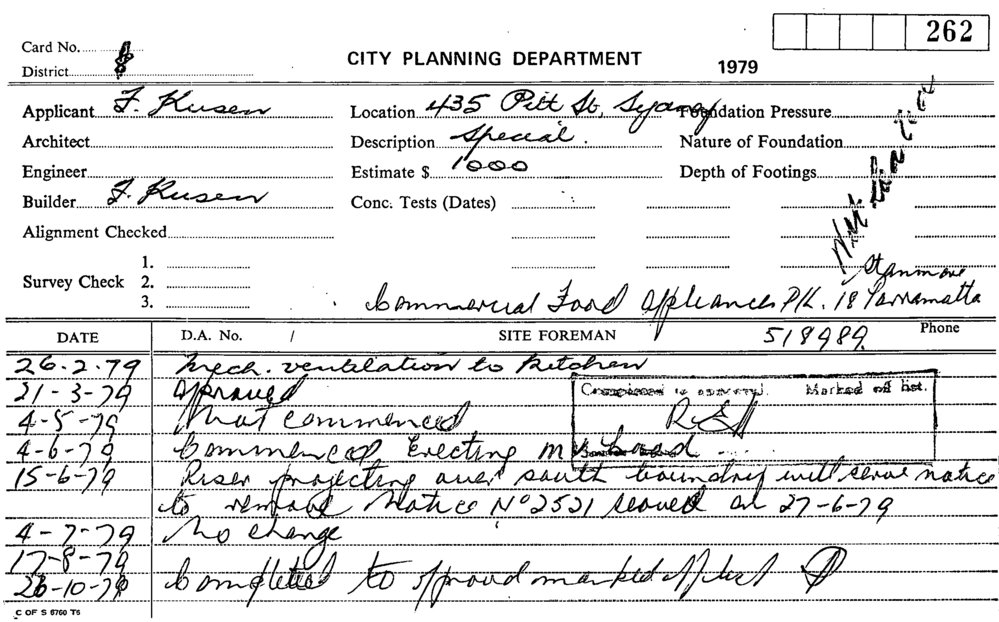 262
Card No.
District 8
CITY PLANNING DEPARTMENT
1979
Applicant F. Kusen
Location 435 Pitt St, Sydney
Foundation Pressure
Architect
Description Special.
Nature of Foundation
Engineer
Estimate $ 1000
Depth of Footings
Builder F. Kusen
Conc. Tests (Dates)
Alignment Checked
Survey Check
1.
2.
3.
Stanmore
Commercial Food Appliances P/L. 18 Parramatta
DATE D.A. No. / SITE FOREMAN 518989 Phone
26.2.79 Mech. ventilation to Kitchen
21-3-79 Aproved
Completed as approved. Marked off list.
4-5-79 Not commenced
4-6-79 Commenced Erecting
15-6-79 Riser projecting over south boundry will serve notice
to remove Notice No 2521 served on 27-6-79
4-7-79 No change
17-8-79
26-10-79 Completed to aproud marked off list
C OF S 6760 T6